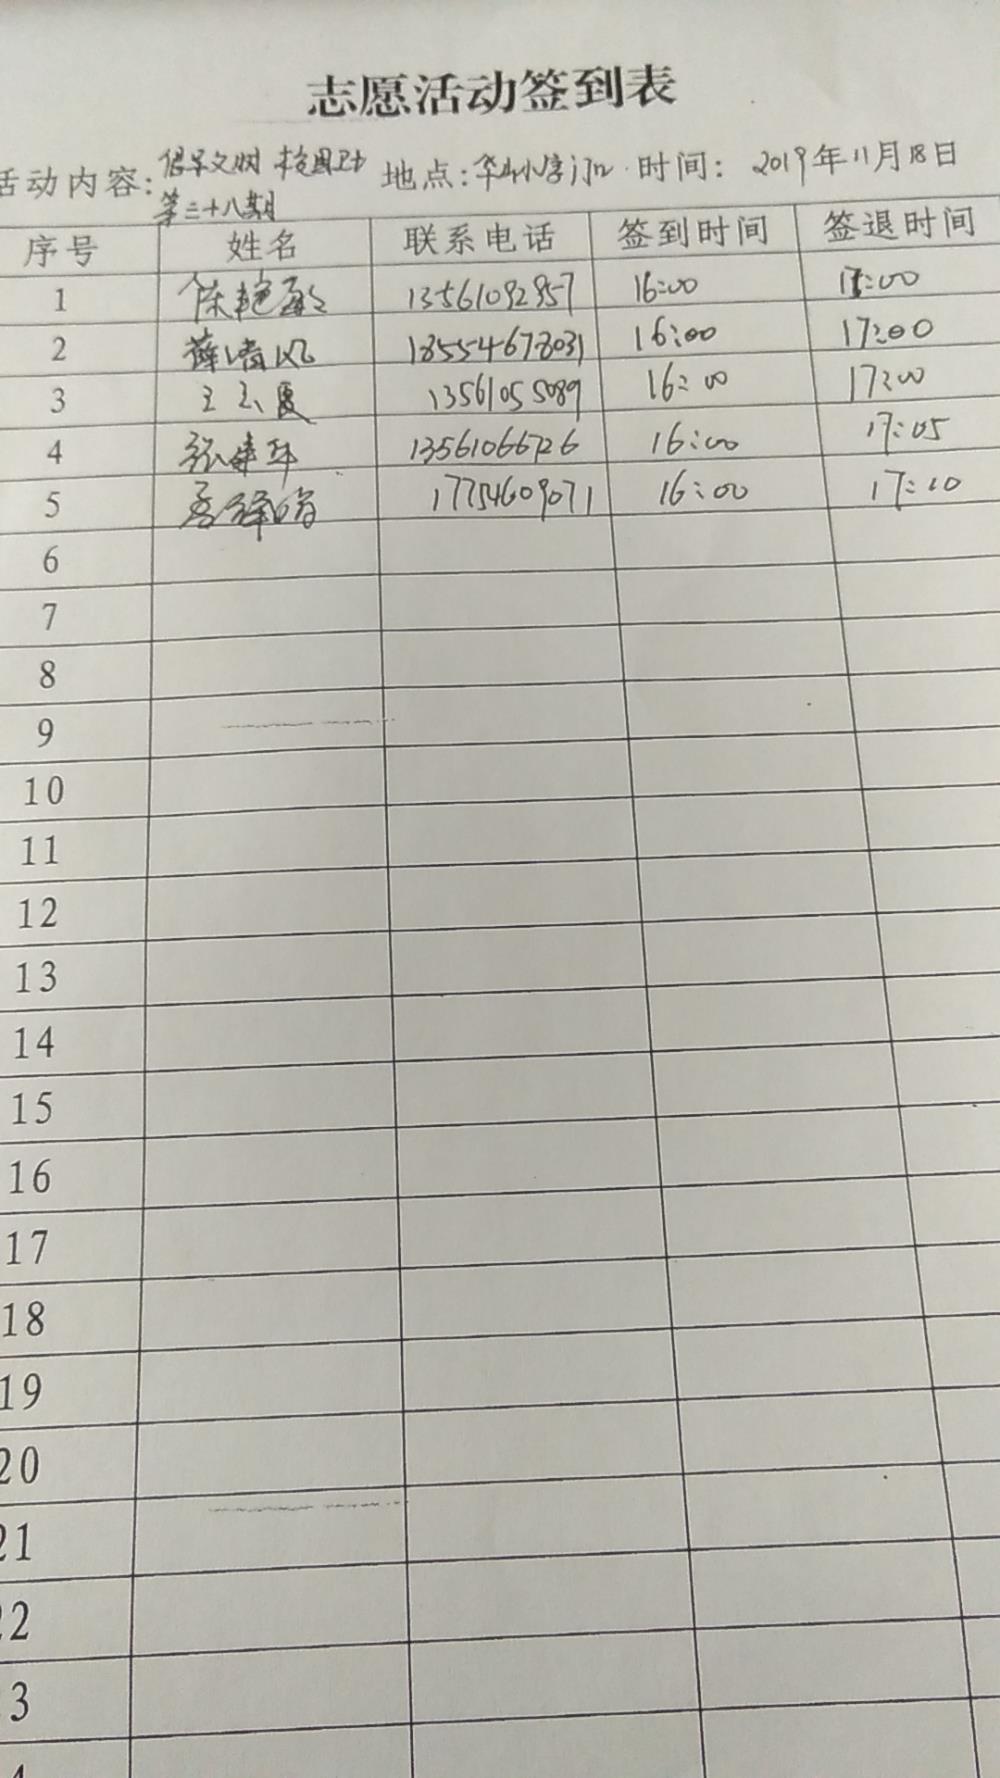 志愿活动签到表
活动内容: 倡导文明 校园卫士 地点: 华山小学门口 时间: 2019年11月18日
第二十八期
序号 姓名 联系电话 签到时间 签退时间
1 陈艳 13561092957 16:00 17:00
2 薛清风 18554678031 16:00 17:00
3 王玉夏 13561055089 16:00 17:00
4 张建环 13561066726 16:00 17:05
5 17754609071 16:00 17:10
6
7
8
9
10
11
12
13
14
15
16
17
18
19
20
21
22
3